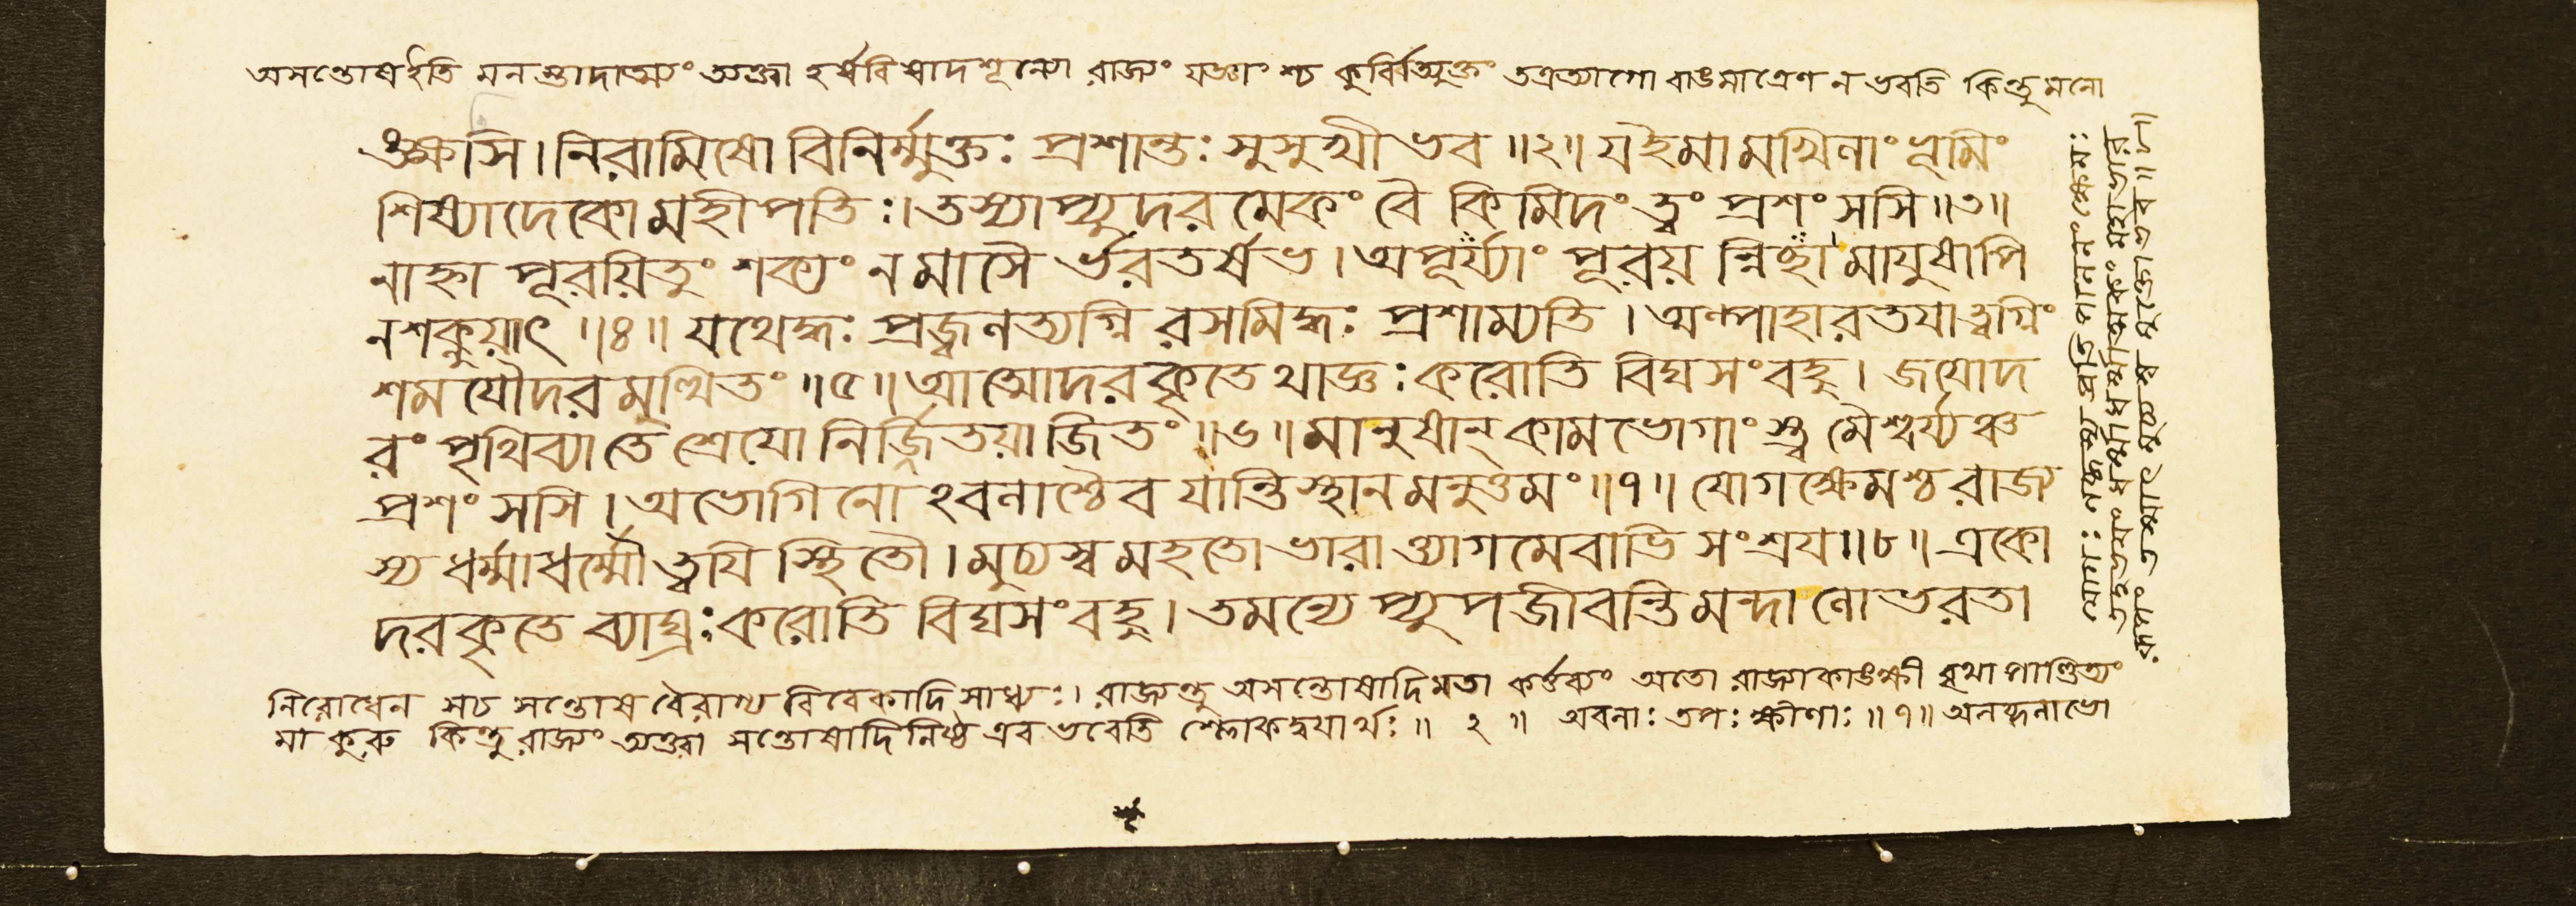 অসন্তোষইতি মনস্তাদাত্ম্যং ত্যক্ত্বা হর্ষবিষাদশূন্যো রাজ্যং যজ্ঞাংশ্চ কুর্ব্বিত্যুক্তং তত্রত্যাগো বাঙমাত্রেণ ন ভবতি কিন্তু মনো
ঙক্ষসি। নিরামিষো বিনির্ম্মুক্তঃ প্রশান্তঃ সুসুখী ভব ॥২॥ যইমামখিলাং ভূমিং
শিষ্যাদেকো মহীপতিঃ। তস্যাপ্যুদরমেকং বৈ কিমিদং ত্বং প্রশংসসি ॥৩॥
নাহ্না পূরয়িতুং শক্যং ন মাসৈ র্ভরতর্ষভ। অপূর্য্যাং পূরয়ন্নিচ্ছামায়ুষাপি
ন শক্নুয়াৎ ॥৪॥ যথেদ্ধঃ প্রজ্বলত্যগ্নি রসমিদ্ধঃ প্রশাম্যতি। অল্পাহারতয়াত্বগ্নিং
শময়ৌদরমুত্থিতং ॥৫॥ আত্মোদরকৃতে থাজ্ঞঃ করোতি বিঘসং বহু। জয়োদ
রং পৃথিব্যাতে শ্রেয়ো নির্জ্জিতয়া জিতং ॥৬॥ মানুষান্ কামভোগাংস্ত্ব মৈশ্বর্য্যঞ্চ
প্রশংসসি। অভোগিনো ঽবলাশ্চৈব যান্তি স্থানমনুত্তমং ॥৭॥ যোগক্ষেমশ্চ রাজ্য
স্য ধর্ম্মাধর্ম্মৌ ত্বয়ি স্থিতৌ। মুচ্যস্ব মহতো ভারাত্ত্যাগমেবাভিসংশ্রয় ॥৮॥ একো
দরকৃতে ব্যাঘ্রঃ করোতি বিঘসং বহু। তমন্যে প্যুপজীবন্তি মন্দা লোভরতা
নিরোধেন সচ সন্তোষ বৈরাগ্য বিবেকাদি সাধ্যঃ। রাজ্যন্তু অসন্তোষাদিমতা কর্ত্তব্যং অতো রাজ্যকাঙক্ষী বৃথা পাণ্ডিত্যং
মা কুরু কিন্তু রাজ্যং ত্যক্ত্বা সন্তোষাদিনিষ্ঠ এব ভবেতি শ্লোকদ্বয়ার্থঃ ॥ ২ ॥ অবলাঃ তপঃ ক্ষীণাঃ ॥৭॥ অলব্ধলাভো
যোগঃ লব্ধস্য প্রতি পালনং ক্ষেমঃ
তদুভয়ং মহাভার
রূপং তস্মাৎ মুচ্যস্ব মুক্তো ভব ॥৮॥